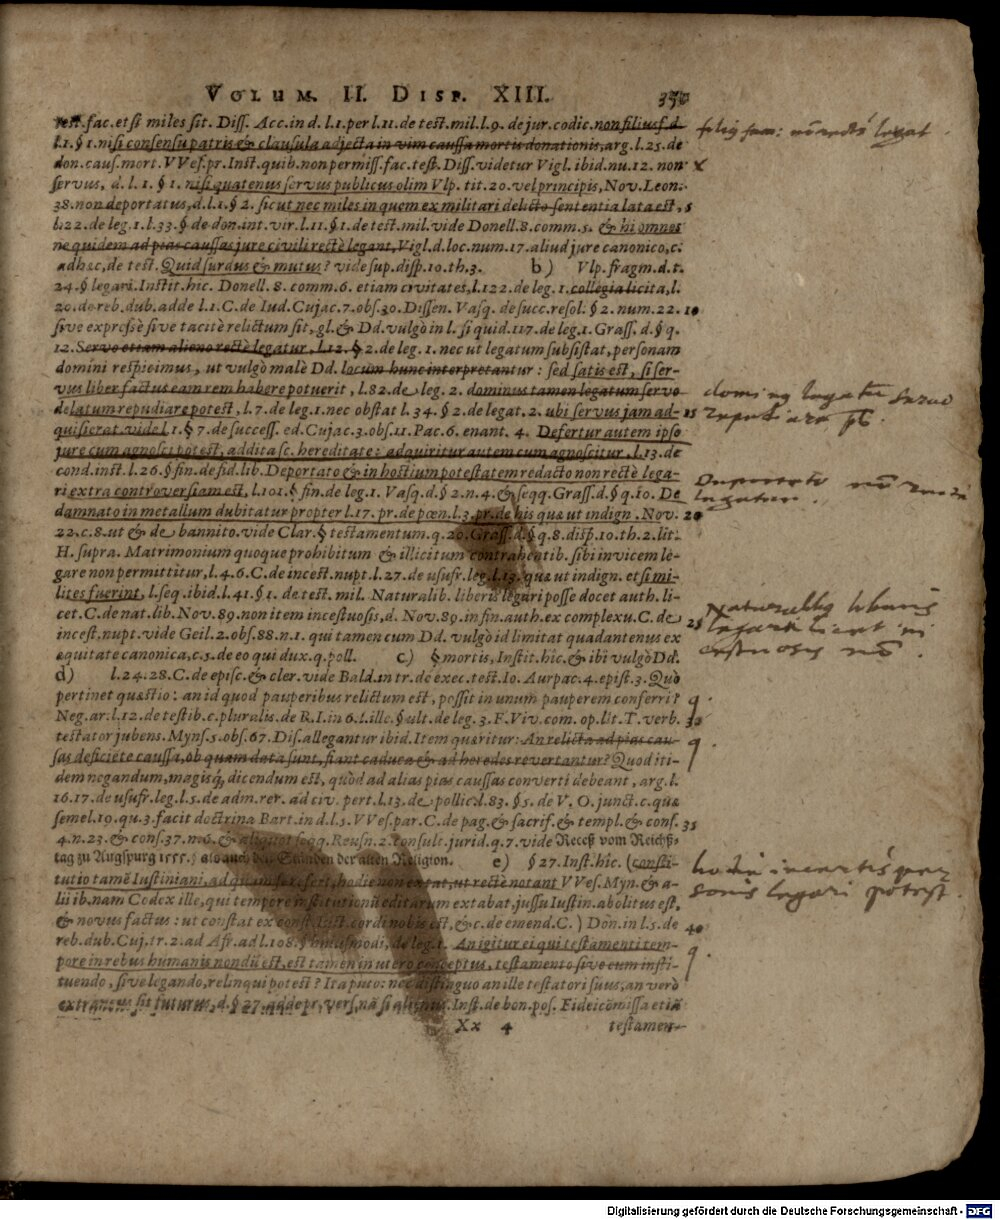 VOLUM. II. DISP. XIII. 350
test. fac. et si miles sit. Diss. Acc. in d. l. 1. per l. 11. de test. mil. l. 9. de jur. codic. non filiusf. d.
l. 1. § 1. nisi consensu patris & clausula adjecta in vim caussa mortis donationis, arg. l. 25. de
don. caus. mort. VVes. pr. Inst. quib. non permiss. fac. test. Diss. videtur Vigl. ibid. nu. 12. non
servus, d. l. 1. § 1. nisi quatenus servus publicus olim Vlp. tit. 20. vel principis, Nov. Leon.
38. non deportatus, d. l. 1. § 2. sicut nec miles in quem ex militari delicto sententia lata est, 5
l. 22. de leg. 1. l. 33. § de don. int. vir. l. 11. § 1. de test. mil. vide Donell. 8. comm. 5. & hi omnes
ne quidem ad pias caussas jure civili rectè legant, Vigl. d. loc. num. 17. aliud jure canonico, c.
ad hæc, de test. Quid surdus & mutus? vide sup. disp. 10. th. 3. b) Vlp. fragm. d. t.
24. § legari. Instit. hic. Donell. 8. comm. 6. etiam civitates, l. 122. de leg. 1. collegia licita, l.
20. de reb. dub. adde l. 1. C. de Iud. Cujac. 7. obs. 30. Dissen. Vasq. de succ. resol. § 2. num. 22. 10
sive expresè sive tacitè relictum sit, gl. & Dd. vulgò in l. si quid. 117. de leg. 1. Grass. d. § q.
12. Servo etiam alieno rectè legatur, l. 12. § 2. de leg. 1. nec ut legatum subsistat, personam
domini respicimus, ut vulgò malè Dd. locum hunc interpretantur: sed satis est, si ser-
vus liber factus eam rem habere potuerit, l. 82. de leg. 2. dominus tamen legatum servo
delatum repudiare potest, l. 7. de leg. 1. nec obstat l. 34. § 2. de legat. 2. ubi servus jam ad- 15
quisierat. vide l. 1. § 7. de success. ed. Cujac. 3. obs. 11. Pac. 6. enant. 4. Defertur autem ipso
jure cum agnosci potest, addita sc. hereditate: adquiritur autem cum agnoscitur, l. 13. de
cond. inst. l. 26. § fin. de fid. lib. Deportato & in hostium potestatem redacto non rectè lega-
ri extra controversiam est, l. 101. § fin. de leg. 1. Vasq. d. § 2. n. 4. & seqq. Grass. d. § q. 10. De
damnato in metallum dubitatur propter l. 17. pr. de pœn. l. 3. pr. de his quæ ut indign. Nov. 20
22. c. 8. ut & de bannito. vide Clar. § testamentum. q. 20. Grass. d. § q. 8. disp. 10. th. 2. lit.
H. supra. Matrimonium quoque prohibitum & illicitum contrahentib. sibi invicem le-
gare non permittitur, l. 4. 6. C. de incest. nupt. l. 27. de usufr. leg. l. 13. quæ ut indign. et si mi-
lites fuerint, l. seq. ibid. l. 41. § 1. de test. mil. Naturalib. liberis legari posse docet auth. li-
cet. C. de nat. lib. Nov. 89. non item incestuosis, d. Nov. 89. in fin. auth. ex complexu. C. de 25
incest. nupt. vide Geil. 2. obs. 88. n. 1. qui tamen cum Dd. vulgò id limitat quadantenus ex
æquitate canonica, c. 5. de eo qui dux. q. poll. c) § mortis, Instit. hîc. & ibi vulgò Dd.
d) l. 24. 28. C. de episc. & cler. vide Bald. in tr. de exec. test. Io. Aurpac. 4. epist. 3. Quò
pertinet quæstio: an id quod pauperibus relictum est, possit in unum pauperem conferri?
Neg. ar. l. 12. de testib. c. pluralis. de R. I. in 6. l. ille. § ult. de leg. 3. F. Viv. com. op. lit. T. verb. 30
testator jubens. Myns. 5. obs. 67. Dis. allegantur ibid. Item quæritur: An relicta ad pias cau-
sas deficiēte caussa, ob quam data sunt, fiant caduca & ad heredes revertantur? Quod iti-
dem negandum, magisq; dicendum est, quòd ad alias pias caussas converti debeant, arg. l.
16. 17. de usufr. leg. l. 5. de adm. rer. ad civ. pert. l. 13. de pollic. l. 83. § 5. de V. O. junct. c. quæ
semel. 19. qu. 3. facit doctrina Bart. in d. l. 5. VVes. par. C. de pag. & sacrif. & templ. & cons. 35
4. n. 23. & cons. 37. n. 6. & aliquot seqq. Reusn. 2. consult. jurid. q. 7. vide Receß vom Reichß-
tag zu Augspurg 1555. § also auch den Ständen der alten Religion. e) § 27. Inst. hîc. (consti-
tutio tamē Iustiniani, ad quam se refert, hodie non extat, ut rectè notant VVes. Myn. & a-
lii ib. nam Codex ille, qui tempore institutionū editarum extabat, jussu Iustin. abolitus est,
& novus factus: ut constat ex const. Iust. cordi nobis est, & c. de emend. C.) Dōn. in l. 5. de 40
reb. dub. Cuj. tr. 2. ad Afr. ad l. 108. § hujusmodi, de leg. 1. An igitur ei qui testamenti tem-
pore in rebus humanis nondū est, est tamen in utero conceptus, testamento sive cum insti-
tuendo, sive legando, relinqui potest? Ita puto: nec distinguo an ille testatori suus, an verò
extraneus sit futurus, d. § 27. adde pr. vers. nā si alienus. Inst. de bon. pos. Fideicōmissa etiā
Xx 4 testamen-
filius fam: nō rectè legat
legatū servo
repudiare
Deportato nō
legatur.
Naturalibus liberis
legari licet in
cestuosis nō.
q.
q.
hodie incertis per
sonis legari potest.
q.
Digitalisierung gefördert durch die Deutsche Forschungsgemeinschaft - DFG